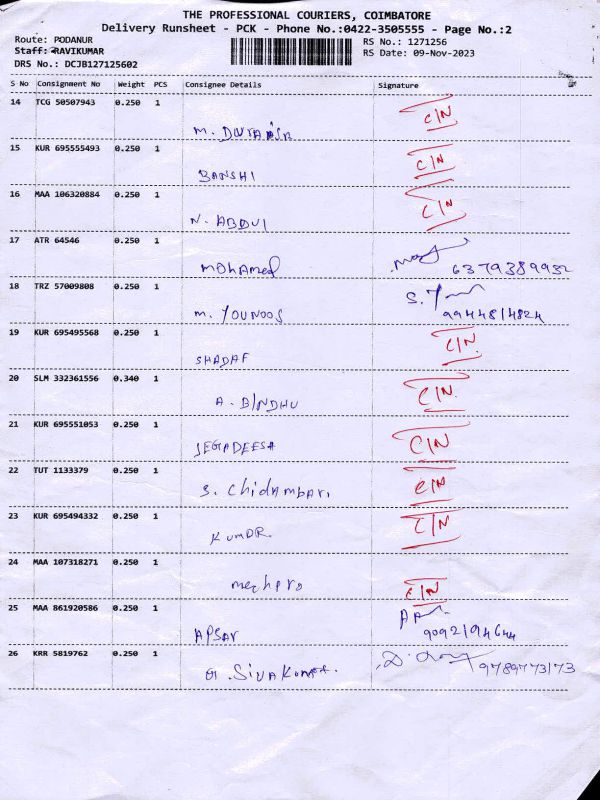 THE PROFESSIONAL COURIERS, COIMBATORE
Delivery Runsheet - PCK - Phone No.:0422-3505555 - Page No.:2
Route: PODANUR RS No.: 1271256
Staff: RAVIKUMAR RS Date: 09-Nov-2023
DRS No.: DCJB127125602
S No Consignment No Weight PCS Consignee Details Signature
14 TCG 50507943 0.250 1
M. C/N
15 KUR 695555493 0.250 1
BANSHI C/N
16 MAA 106320884 0.250 1
N. ABDUL C/N
17 ATR 64546 0.250 1
MOHAMED 6379389932
18 TRZ 57009808 0.250 1
M. YOUNOOS 9944814824
19 KUR 695495568 0.250 1
SHADAF C/N
20 SLM 332361556 0.340 1
A. BINDHU C/N
21 KUR 695551053 0.250 1
JEGADEESA C/N
22 TUT 1133379 0.250 1
S. Chidambari C/N
23 KUR 695494332 0.250 1
KUMAR C/N
24 MAA 107318271 0.250 1
C/N
25 MAA 861920586 0.250 1
APSAR 9092194644
26 KRR 5819762 0.250 1
G. SIVAKUMAR. 9789773173